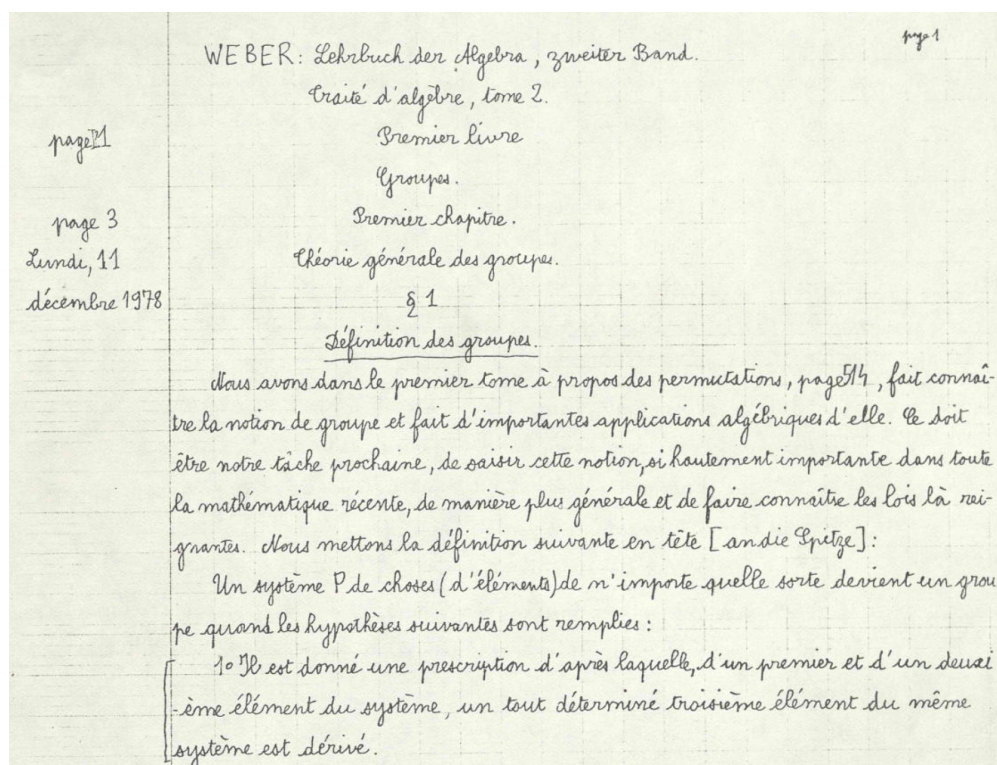 page 1
WEBER: Lehrbuch der Algebra, zweiter Band.
Traité d'algèbre, tome 2.
page 1
Premier livre
Groupes.
page 3
Premier chapitre.
Lundi, 11
Théorie générale des groupes.
décembre 1978
§ 1
Définition des groupes.
Nous avons dans le premier tome à propos des permutations, page 514, fait connaî-
tre la notion de groupe et fait d'importantes applications algébriques d'elle. Ce doit
être notre tâche prochaine, de saisir cette notion, si hautement importante dans toute
la mathématique récente, de manière plus générale et de faire connaître les lois là rei-
gnantes. Nous mettons la définition suivante en tête [an die Spitze]:
Un système P de choses (d'éléments) de n'importe quelle sorte devient un grou
pe quand les hypothèses suivantes sont remplies :
1o Il est donné une prescription d'après laquelle, d'un premier et d'un deuxi
-ème élément du système, un tout déterminé troisième élément du même
système est dérivé.